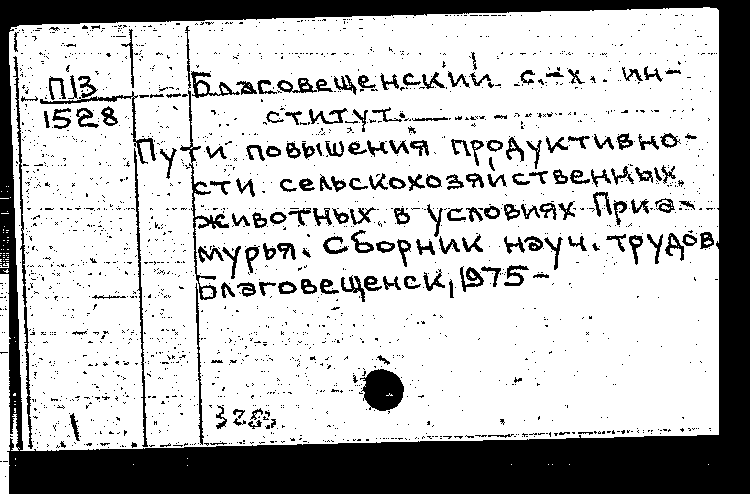 П13
1528
Благовещенский с.-х. ин-
ститут.
Пути повышения продуктивно-
сти сельскохозяйственных
животных в условиях Приа-
мурья. Сборник науч. трудов.
Благовещенск, 1975-